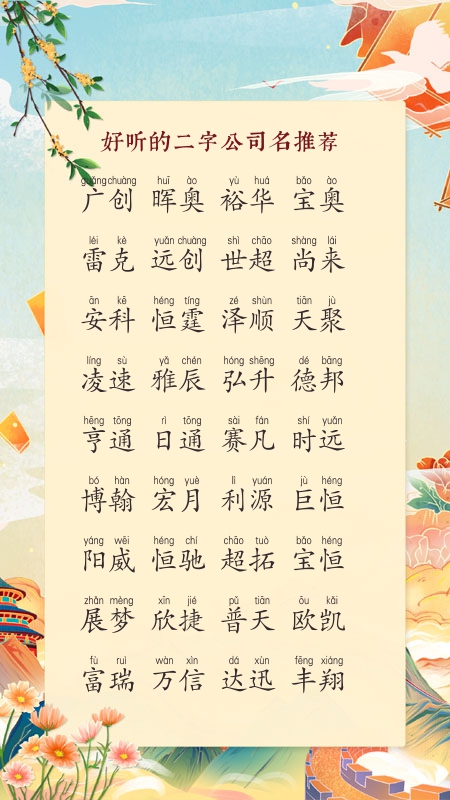 好听的二字公司名推荐
guǎng chuàng huī ào yù huá bǎo ào
广创 晖奥 裕华 宝奥
léi kè yuǎn chuàng shì chāo shàng lái
雷克 远创 世超 尚来
ān kē héng tíng zé shùn tiān jù
安科 恒霆 泽顺 天聚
líng sù yǎ chén hóng shēng dé bāng
凌速 雅辰 弘升 德邦
hēng tōng rì tōng sài fán shí yuǎn
亨通 日通 赛凡 时远
bó hàn hóng yuè lì yuán jù héng
博翰 宏月 利源 巨恒
yáng wēi héng chí chāo tuò bǎo héng
阳威 恒驰 超拓 宝恒
zhǎn mèng xīn jié pǔ tiān ōu kǎi
展梦 欣捷 普天 欧凯
fù ruì wàn xìn dá xùn fēng xiáng
富瑞 万信 达迅 丰翔